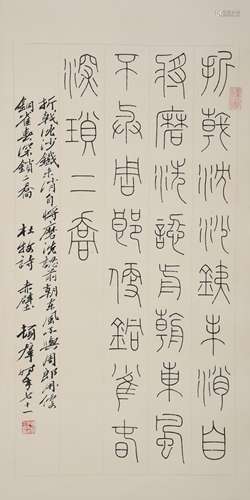 折戟沈沙銕未消自
將磨洗認前朝東風
不與周郎便銅雀春
深瑣二喬
折戟沈沙鐵未消自將磨洗認前朝東風不與周郎便
銅雀春深鎖二喬 杜牧詩 赤壁 年七十一